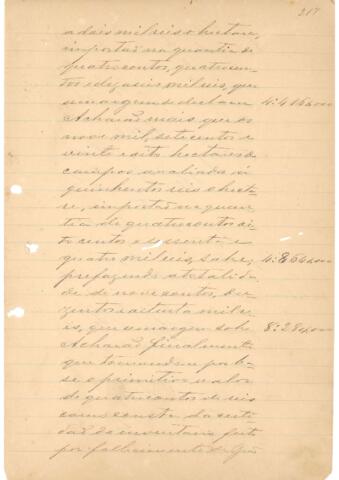 217
a dois mil reis o hectare,
importão na quantia de
quatro contos, quatrocen-
tos e dezaseis mil reis, que
a margem se declaram 4:416000
Acharão mais que os
nove mil, setecentos e
vinte e oito hectares de
campos avaliados a
quinhentos reis o hecta-
re, importão na quan-
tia de quatro contos oi-
tocentos e sessenta e
quatro mil reis, sobre, 4:864000
prefazendo a totalida-
de de nove contos, du-
zentos e oitenta mil re-
is, que a margem sobre
Acharão finalmente
que tomando-se por ba-
se o primitivo valor
de quatro contos de reis
como consta da certi-
dão do inventario feito
por fallecimento de